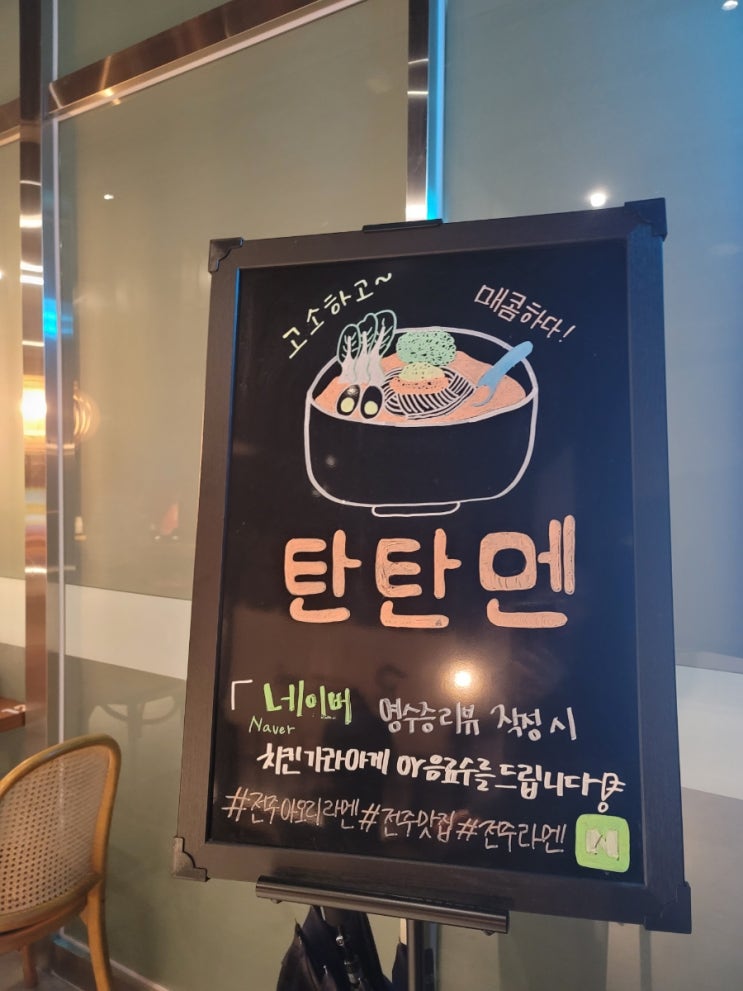 고소하고~
매콤하다!
탄탄멘
「네이버 영수증리뷰 작성 시
Naver
치킨가라아게 or 음료수를 드립니다!
#전주아오리라멘 #전주맛집 #전주라멘 N